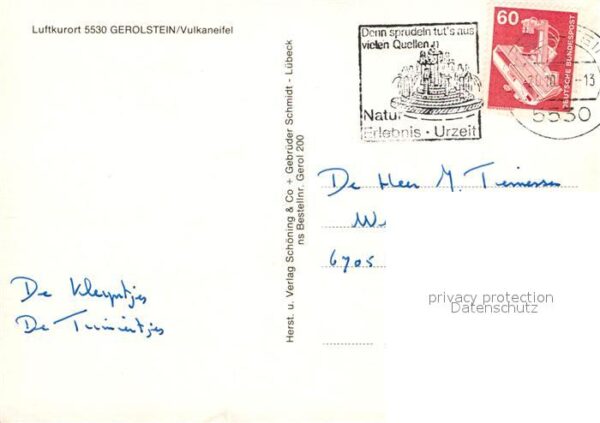 Luftkurort 5530 GEROLSTEIN/Vulkaneifel
Denn sprudeln tut's aus
vielen Quellen
Natur
Erlebnis · Urzeit
60
DEUTSCHE BUNDESPOST
-13
5530
Herst. u. Verlag Schöning & Co + Gebrüder Schmidt - Lübeck
ns Bestellnr. Gerol 200
De Heer M.
6705
De
De
privacy protection
Datenschutz